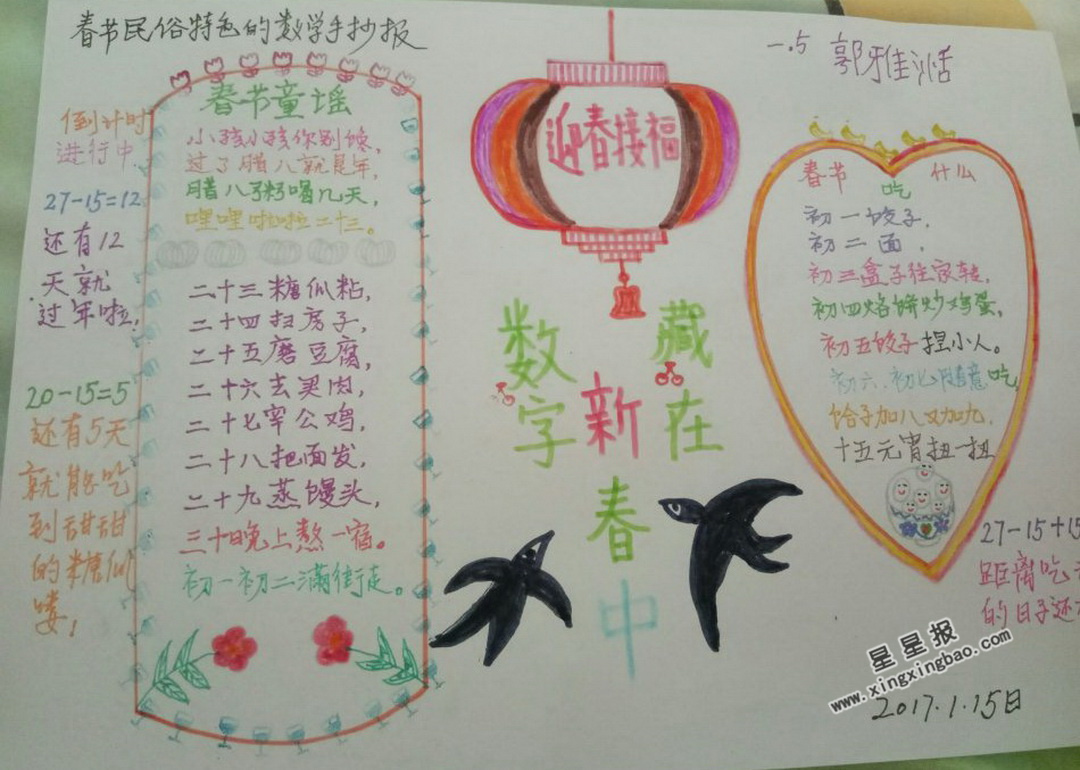 春节民俗特色的数学手抄报
一.5 郭雅洁
倒计时
进行中
27-15=12
还有12
天就
过年啦,
20-15=5
还有5天
就能吃
到甜甜
的糖瓜
喽!
春节童谣
小孩小孩你别馋,
过了腊八就是年,
腊八粥喝几天,
哩哩啦啦二十三。
二十三糖瓜粘,
二十四扫房子,
二十五磨豆腐,
二十六去买肉,
二十七宰公鸡,
二十八把面发,
二十九蒸馒头,
三十晚上熬一宿。
初一初二满街走。
迎春接福
数字
藏在
新春中
春节吃什么
初一饺子,
初二面,
初三盒子往家转,
初四烙饼炒鸡蛋,
初五饺子捏小人。
初六、初七随意吃,
饸子加八又加九,
十五元宵扭一扭
27-15+15
距离吃
的日子还
星星报
www.xingxingbao.com
2017.1.15日